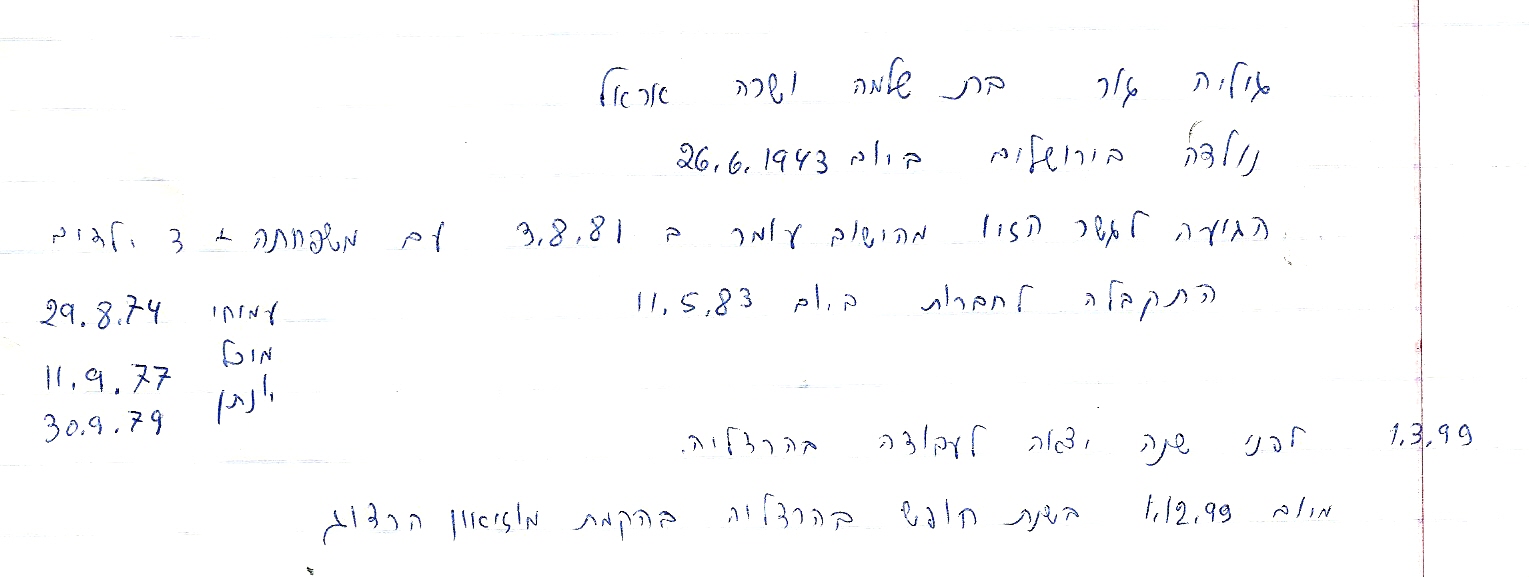 גוליה גור בת שלמה ושרה אראל
נולדה בירושלים ביום 26.6.1943
הגיעה לגשר הזיו מהישוב עומר ב 3.8.81 עם משפחתה + 3 ילדים
התקבלה לחברות ביום 11.5.83
עמיחי 29.8.74
מיכל 11.9.77
יונתן 30.9.79
1.3.99 לפני שנה יצאה לעבודה בהרצליה.
מיום 1.12.99 בשנת חופש בהרצליה בהקמת מוזיאון